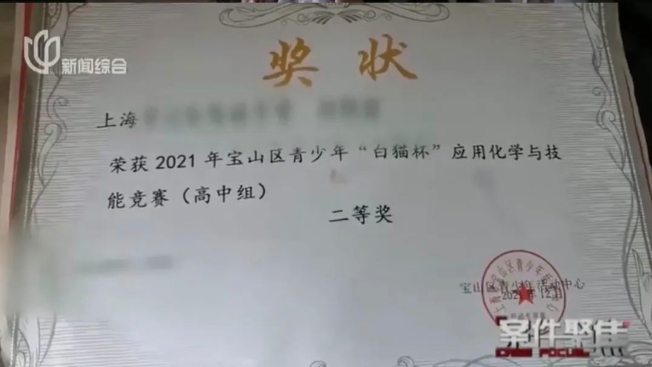 新闻综合
奖状
上海
荣获2021年宝山区青少年“白猫杯”应用化学与技
能竞赛（高中组）
二等奖
宝山区青少年活动中心
案件聚焦
CASE FOCUS